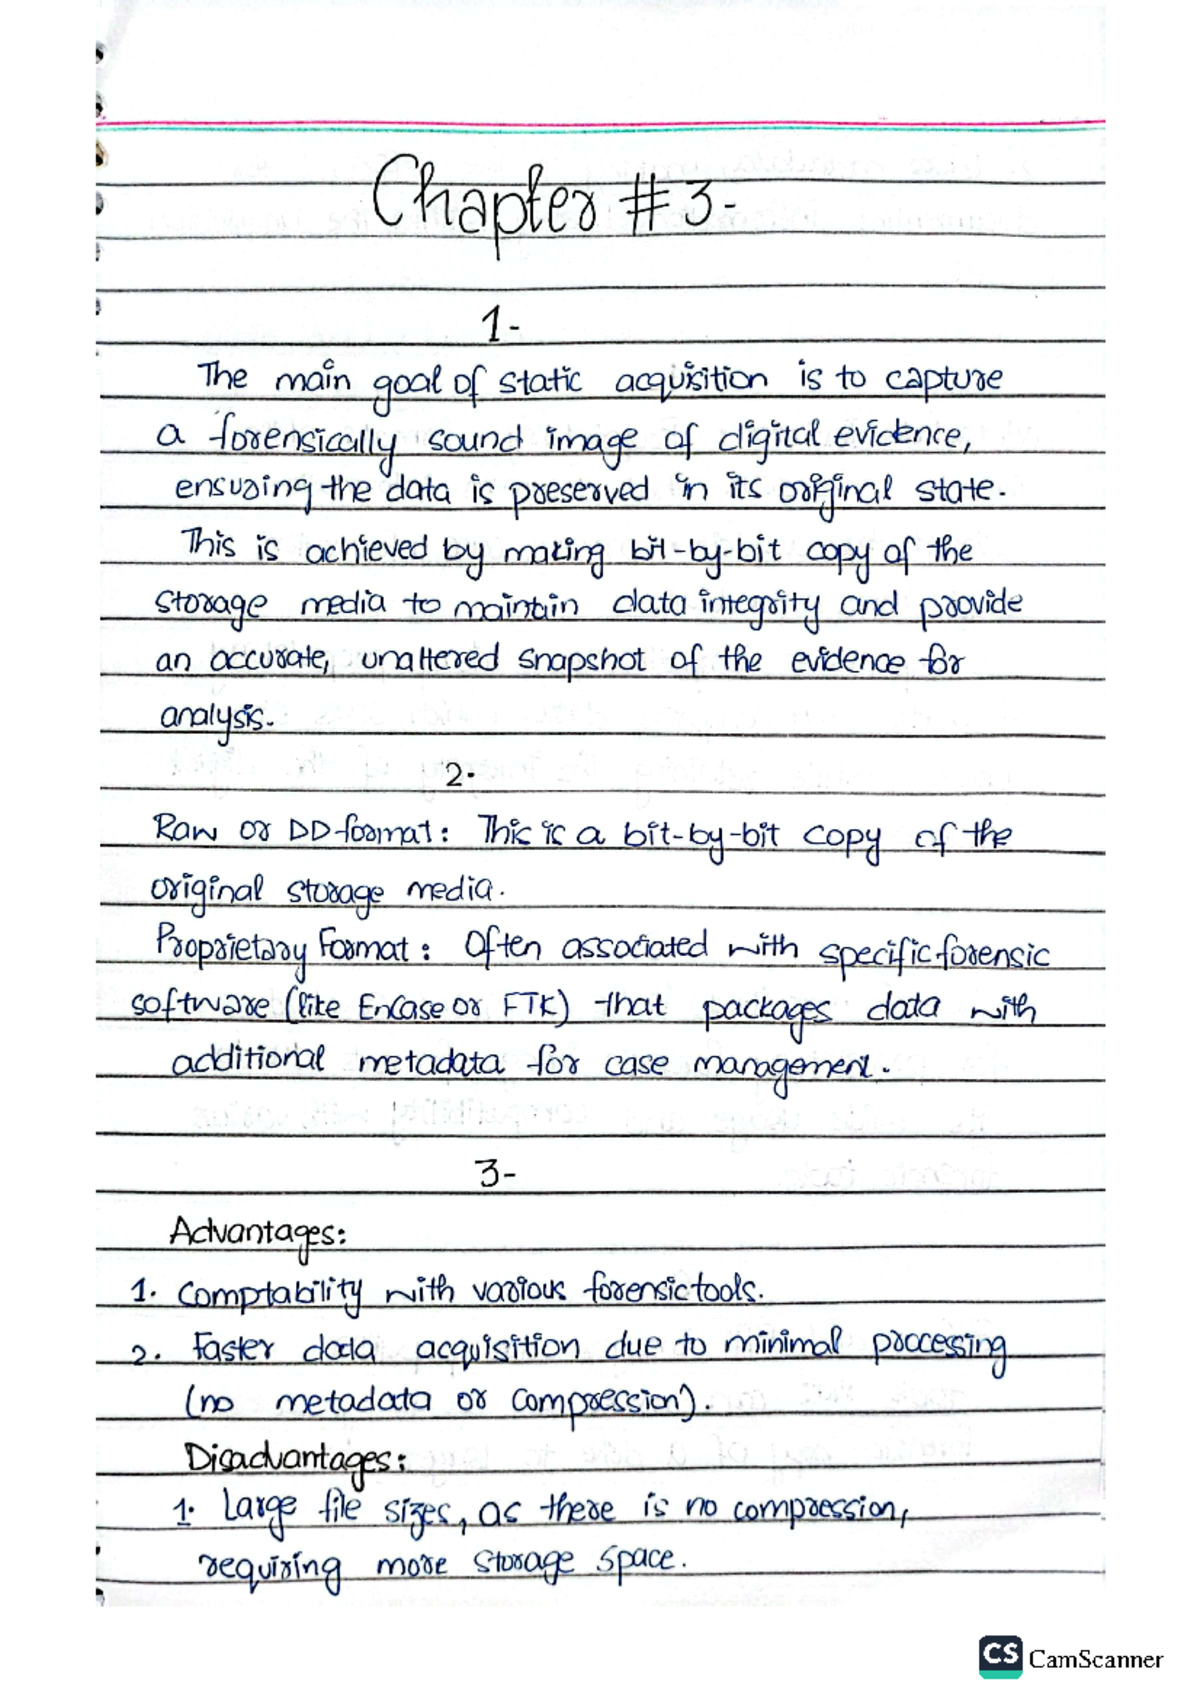 Chapter #3-
1-
The main goal of static acquisition is to capture
a forensically sound image of digital evidence,
ensuring the data is preserved in its original state.
This is achieved by making bit-by-bit copy of the
storage media to maintain data integrity and provide
an accurate, unaltered snapshot of the evidence for
analysis.
2.
Raw or DD-format: This is a bit-by-bit copy of the
original storage media.
Proprietary Format: Often associated with specific forensic
software (like EnCase or FTK) that packages data with
additional metadata for case management.
3-
Advantages:
1. Comptability with various forensic tools.
2. Faster data acquisition due to minimal proccessing
(no metadata or compression).
Disadvantages:
1. Large file sizes, as there is no compression,
requiring more storage space.
CS CamScanner